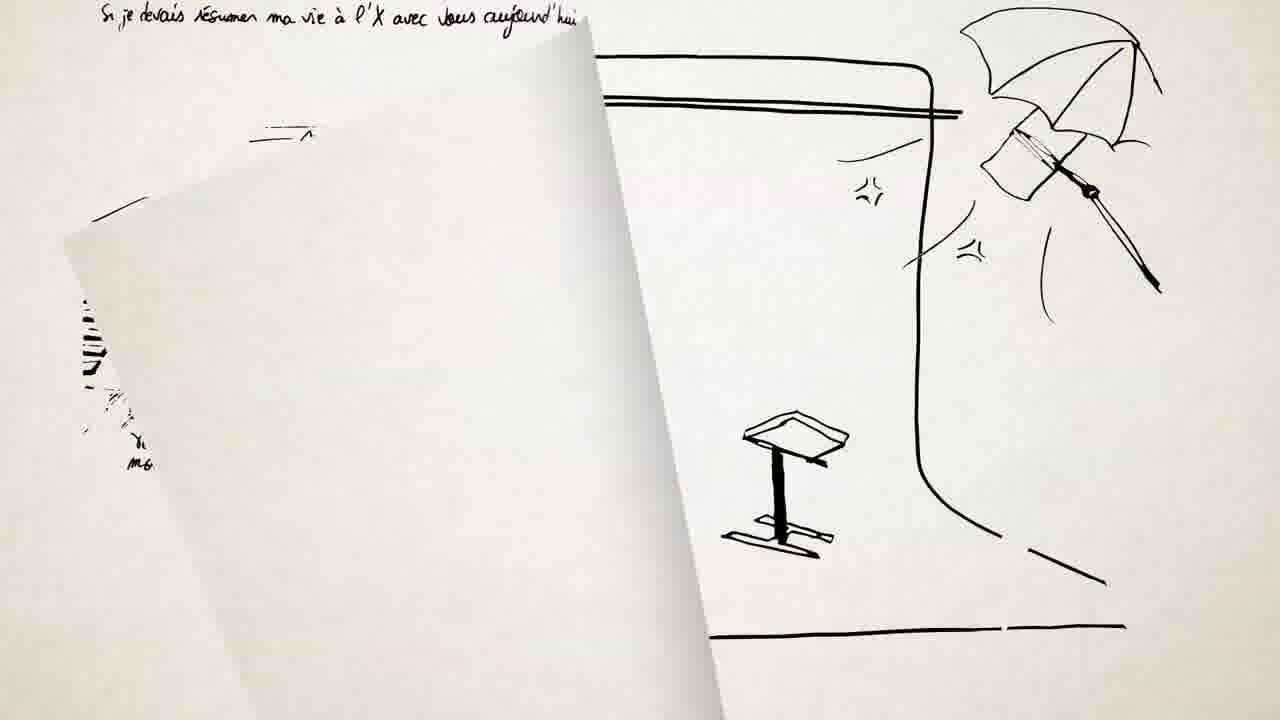 Si je devais résumer ma vie à l'X avec vous aujourd'hui